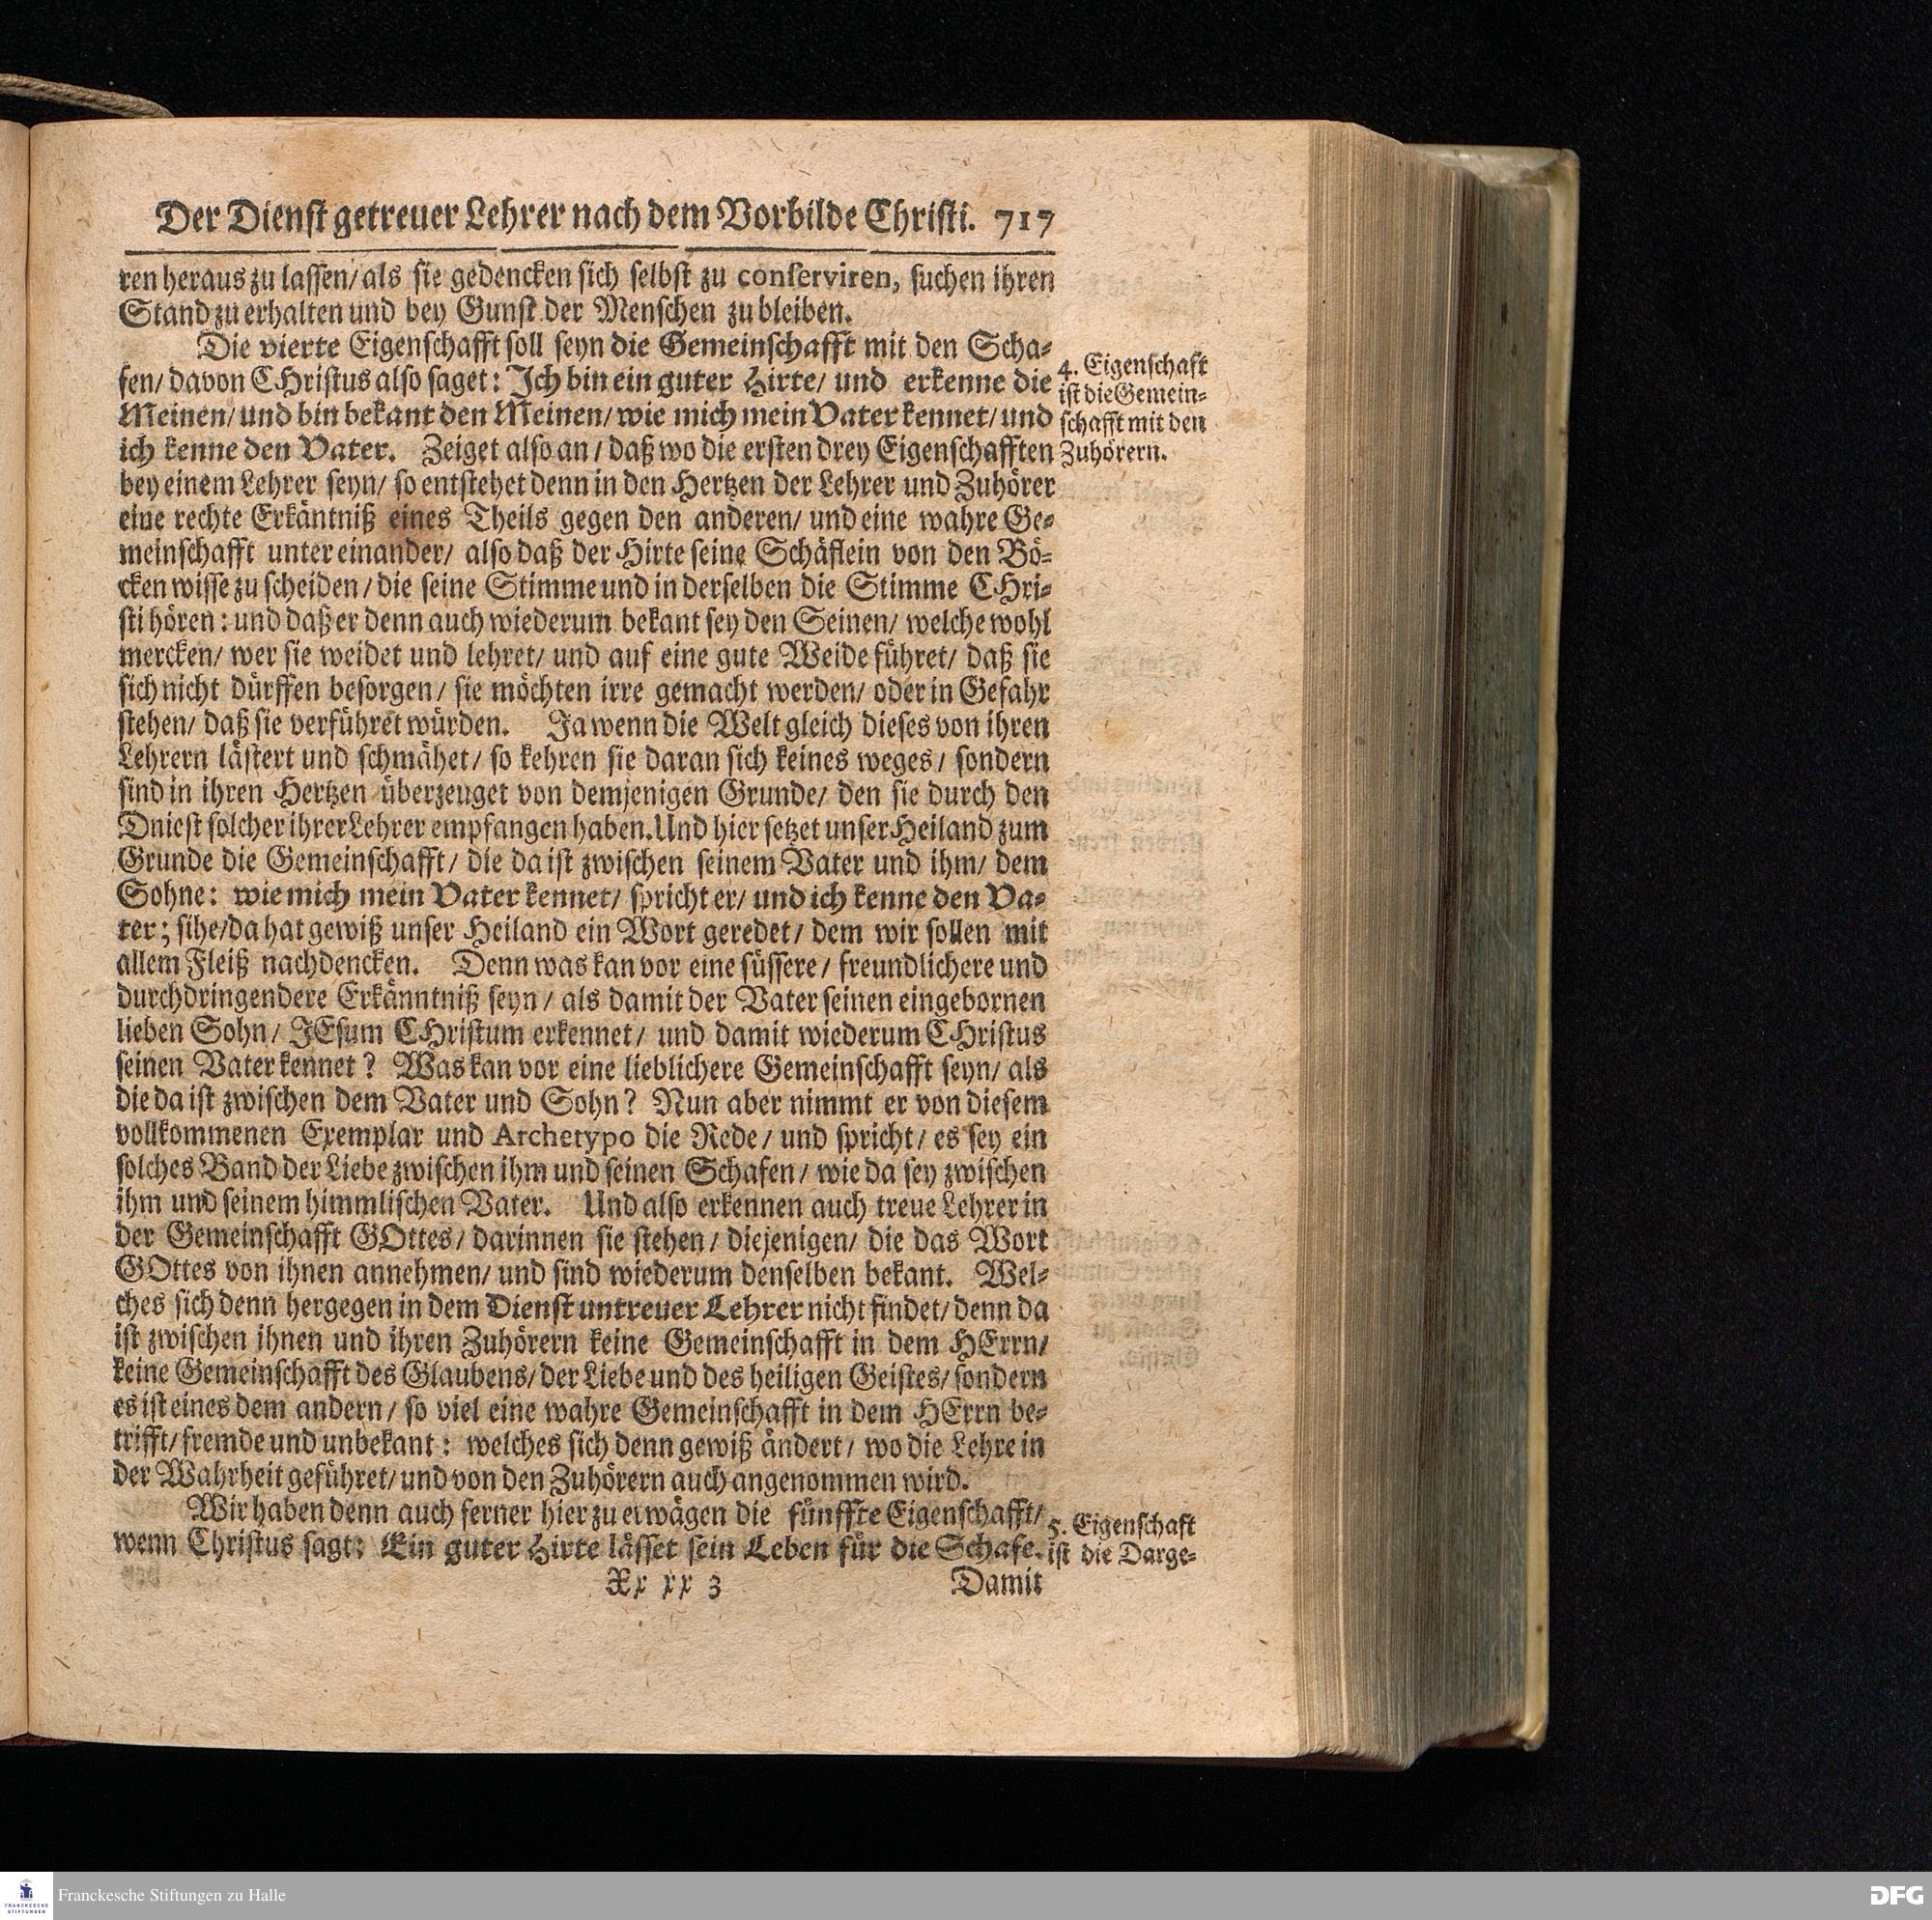 Der Dienst getreuer Lehrer nach dem Vorbilde Christi. 717
ren heraus zu lassen/ als sie gedencken sich selbst zu conserviren, suchen ihren
Stand zu erhalten und bey Gunst der Menschen zu bleiben.
Die vierte Eigenschafft soll seyn die Gemeinschafft mit den Scha-
fen/ davon CHristus also saget: Ich bin ein guter Hirte/ und erkenne die
Meinen/ und bin bekant den Meinen/ wie mich mein Vater kennet/ und
ich kenne den Vater. Zeiget also an/ daß wo die ersten drey Eigenschafften
bey einem Lehrer seyn/ so entstehet denn in den Hertzen der Lehrer und Zuhörer
eine rechte Erkäntniß eines Theils gegen den anderen/ und eine wahre Ge-
meinschafft unter einander/ also daß der Hirte seine Schäflein von den Bö-
cken wisse zu scheiden/ die seine Stimme und in derselben die Stimme CHri-
sti hören: und daß er denn auch wiederum bekant sey den Seinen/ welche wohl
mercken/ wer sie weidet und lehret/ und auf eine gute Weide führet/ daß sie
sich nicht dürffen besorgen/ sie möchten irre gemacht werden/ oder in Gefahr
stehen/ daß sie verführet würden. Ja wenn die Welt gleich dieses von ihren
Lehrern lästert und schmähet/ so kehren sie daran sich keines weges/ sondern
sind in ihren Hertzen überzeuget von demjenigen Grunde/ den sie durch den
Dniest solcher ihrer Lehrer empfangen haben. Und hier setzet unser Heiland zum
Grunde die Gemeinschafft/ die da ist zwischen seinem Vater und ihm/ dem
Sohne: wie mich mein Vater kennet/ spricht er/ und ich kenne den Va-
ter; sihe/ da hat gewiß unser Heiland ein Wort geredet/ dem wir sollen mit
allem Fleiß nachdencken. Denn was kan vor eine süssere/ freundlichere und
durchdringendere Erkänntniß seyn/ als damit der Vater seinen eingebornen
lieben Sohn/ JEsum CHristum erkennet/ und damit wiederum CHristus
seinen Vater kennet? Was kan vor eine lieblichere Gemeinschafft seyn/ als
die da ist zwischen dem Vater und Sohn? Nun aber nimmt er von diesem
vollkommenen Exemplar und Archetypo die Rede/ und spricht/ es sey ein
solches Band der Liebe zwischen ihm und seinen Schafen/ wie da sey zwischen
ihm und seinem himmlischen Vater. Und also erkennen auch treue Lehrer in
der Gemeinschafft GOttes/ darinnen sie stehen/ diejenigen/ die das Wort
GOttes von ihnen annehmen/ und sind wiederum denselben bekant. Wel-
ches sich denn hergegen in dem Dienst untreuer Lehrer nicht findet/ denn da
ist zwischen ihnen und ihren Zuhörern keine Gemeinschafft in dem HErrn/
keine Gemeinschafft des Glaubens/ der Liebe und des heiligen Geistes/ sondern
es ist eines dem andern/ so viel eine wahre Gemeinschafft in dem HErrn be-
trifft/ fremde und unbekant: welches sich denn gewiß ändert/ wo die Lehre in
der Wahrheit geführet/ und von den Zuhörern auch angenommen wird.
Wir haben denn auch ferner hier zu erwägen die fünffte Eigenschafft/
wenn Christus sagt: Ein guter Hirte lässet sein Leben für die Schafe.
Xx xx 3 Damit
4. Eigenschaft
ist die Gemein-
schafft mit den
Zuhörern.
5. Eigenschaft
ist die Darge-
Franckesche Stiftungen zu Halle
FRANCKESCHE
STIFTUNGEN
DFG